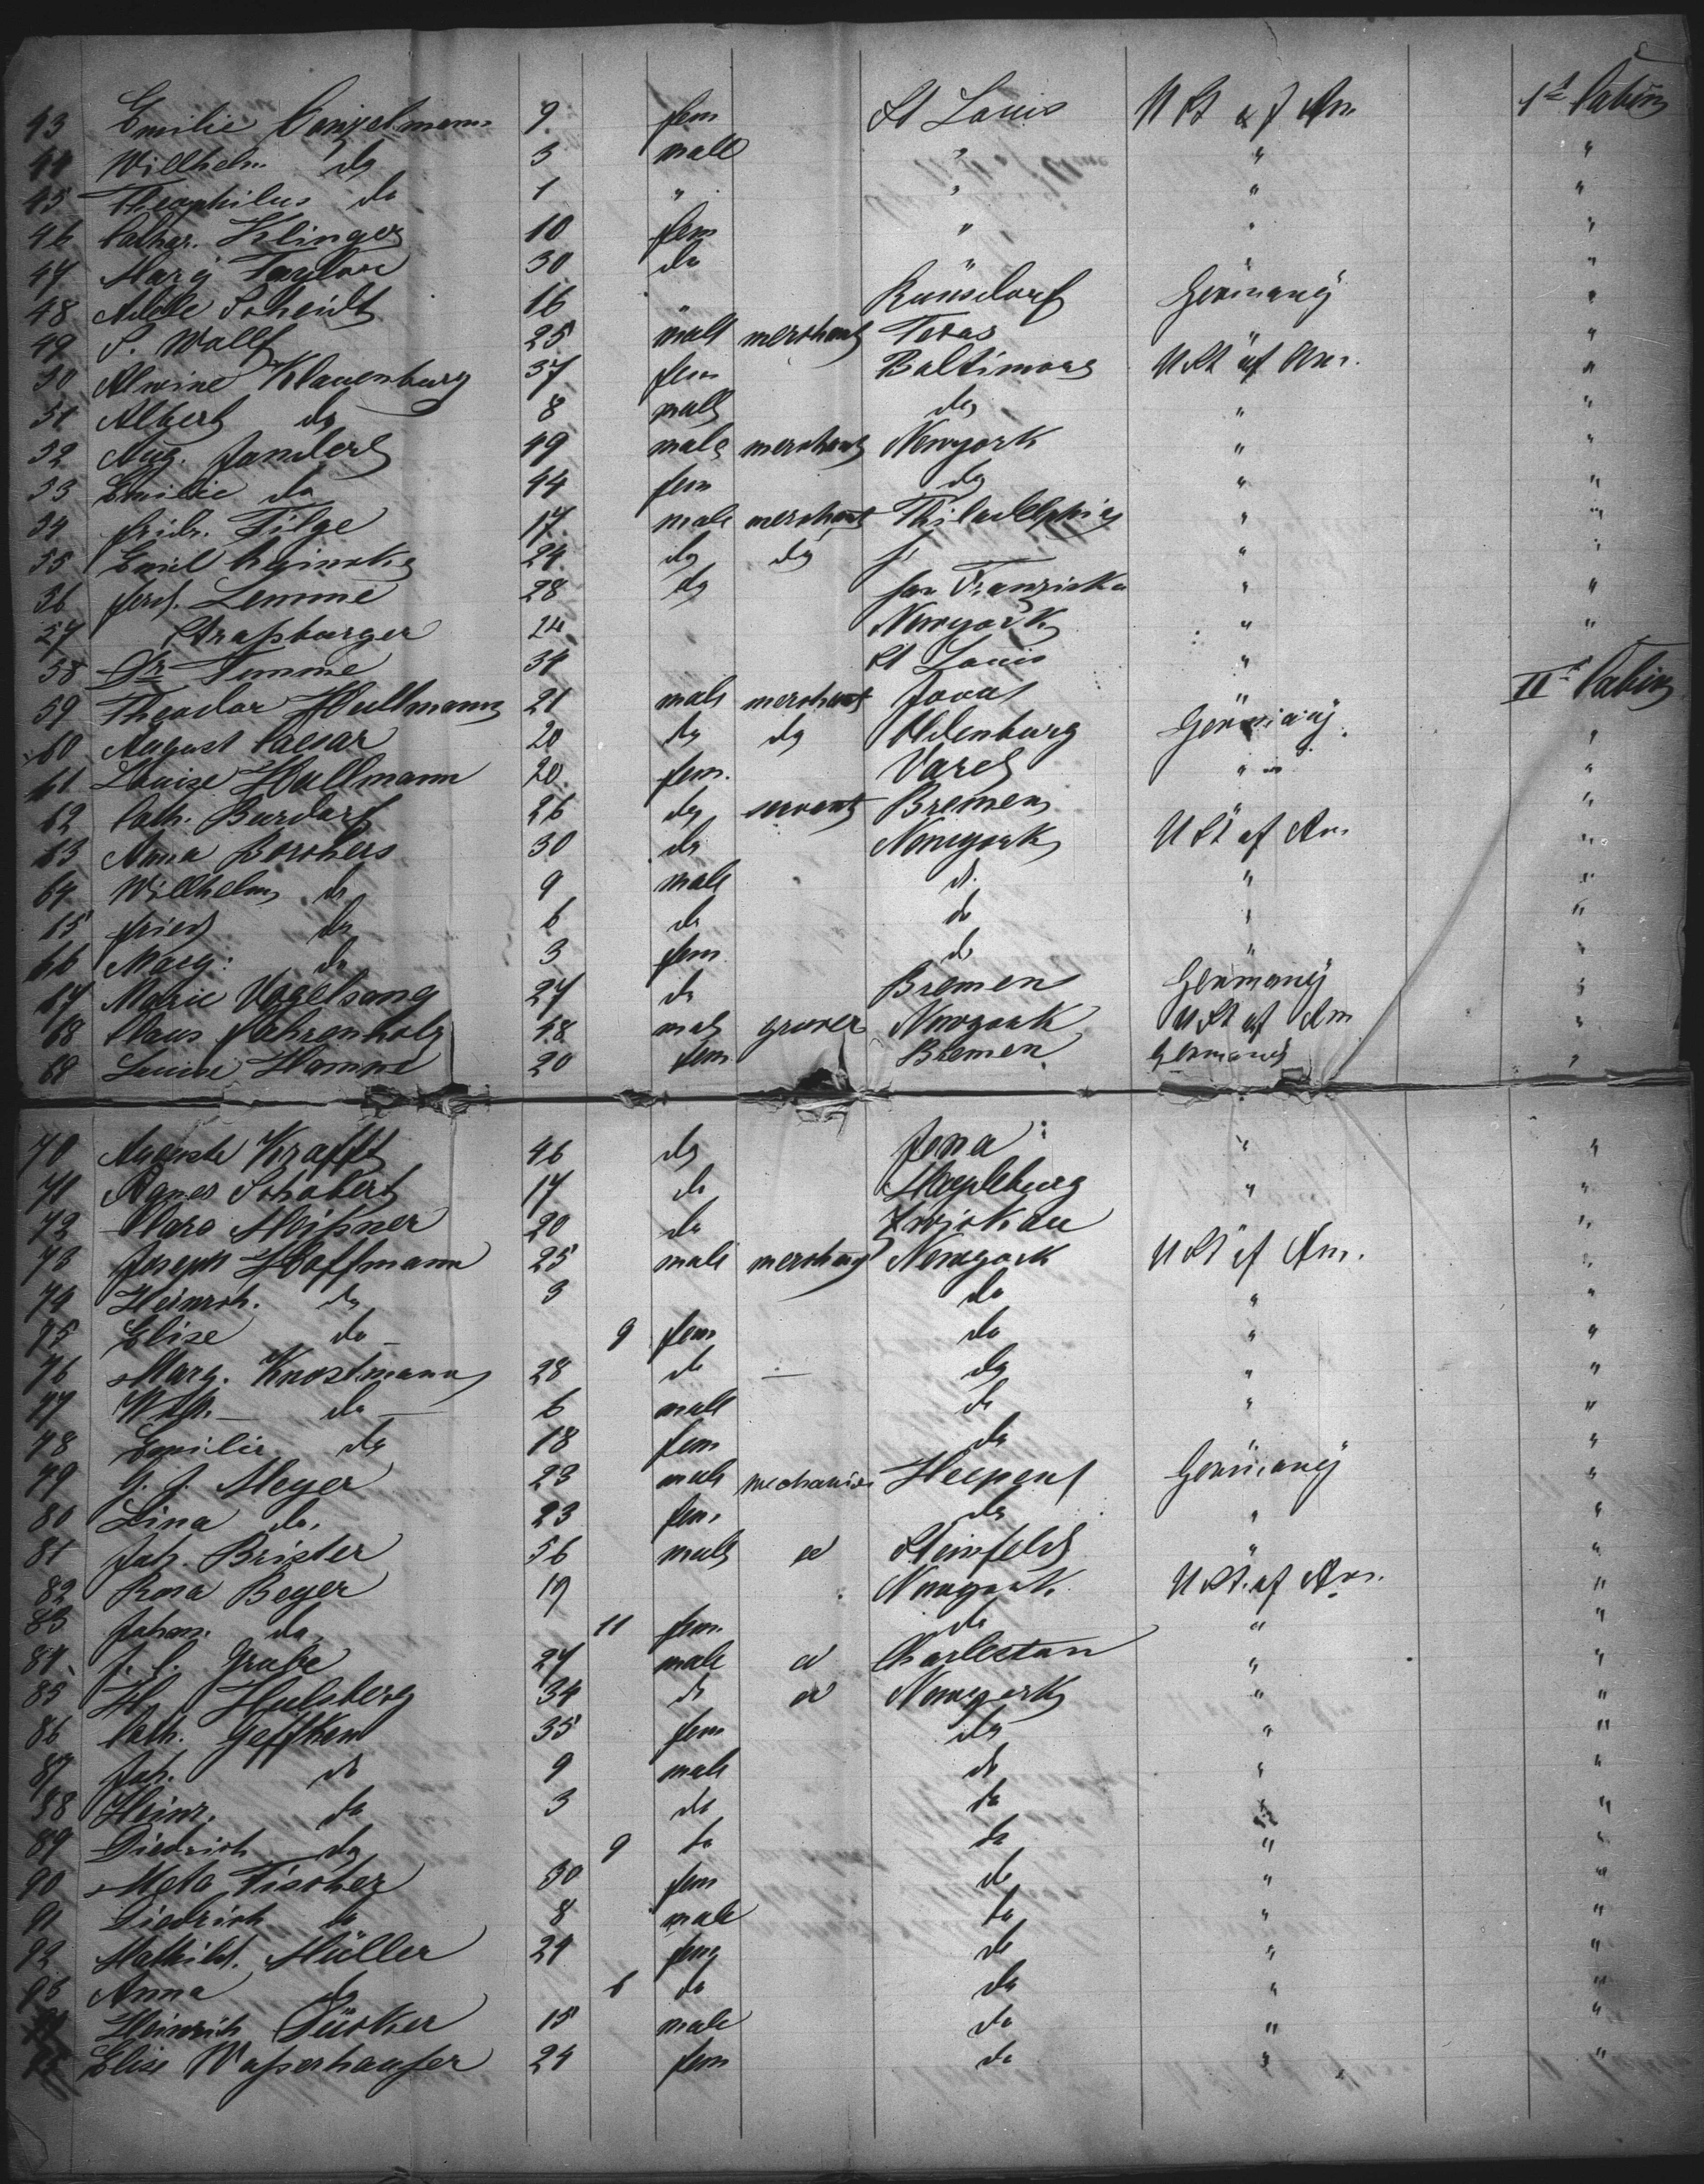 43 Emilie Conzelmann 9 fem St Louis U St of Am 1st Cabin
44 Willhelm do 3 male " " "
45 Theophilus do 1 " " " "
46 Cathar. Klinger 10 fem " " "
47 Mary Taylor 30 do " " "
48 Adele Scheidt 16 " Germany "
49 S. Wolff 25 male merchant Texas "
50 Alwine Klauenburg 37 fem Baltimore U St of Am. "
51 Albert do 8 male do " "
52 Aug. 49 male merchant Newyork " "
53 Emilie do 44 fem do " "
54 Fridr. Tilge 17 male merchant Philadelphia " "
55 Emil 24 do do " "
56 Ferd. Lemme 28 do San Franziska " "
57 Straßburger 24 Newyork " "
58 Dr Temme 34 St Louis " "
59 Theodor Hullmann 21 male merchant " IId Cabin
60 August Caesar 20 do do Oldenburg Germany. "
61 Louise Hullmann 20 fem. Varel " "
62 Cath. Burdorf 26 do servant Bremen "
63 Anna Borchers 30 do Newyork U St of Am "
64 Willhelm do 9 male d. " "
65 Fried do 6 do do " "
66 Marg: do 3 fem do " "
67 Marie Vogelsang 27 do Bremen Germany "
68 Claus Fahrenholz 48 male grocer Newyork U St of Am "
69 Louise Hamme 20 fem Bremen Germany "
70 Auguste Krafft 46 do Jena " "
71 Agnes Schobert 17 do " "
72 Clara Meißner 20 do Zwickau "
73 Joseph Hoffmann 25 male merchant Newyork U St of Am. "
74 Heinrch. do 3 do " "
75 Elise do 9 fem do " "
76 Marg. Knostmann 28 do do " "
77 Wilh. do 6 male do " "
78 Emilie do 18 fem do " "
79 G. J. Meyer 23 male mechanics Heepen Germany "
80 Lina do. 23 fem. do " "
81 Joh. Brister 56 male Steinfeld " "
82 Rosa Beyer 19 Newyork U St. of Am. "
83 Johan. do 11 fem. do " "
84 J. C. Grube 27 male Charlestan " "
85 H. Hulsberg 34 do Newyork " "
86 Cath. Geffken 35 fem do " "
87 Joh. do 9 male do " "
88 Heinr. do 3 do do " "
89 Diedrich do 9 do do " "
90 Meta Fischer 30 fem do " "
91 Diedrich do 8 male do " "
92 Mathild. Müller 24 fem do " "
93 Anna do 6 do do " "
94 Heinrich Lücker 15 male do " "
95 Elise Waßerhauser 24 fem do " "